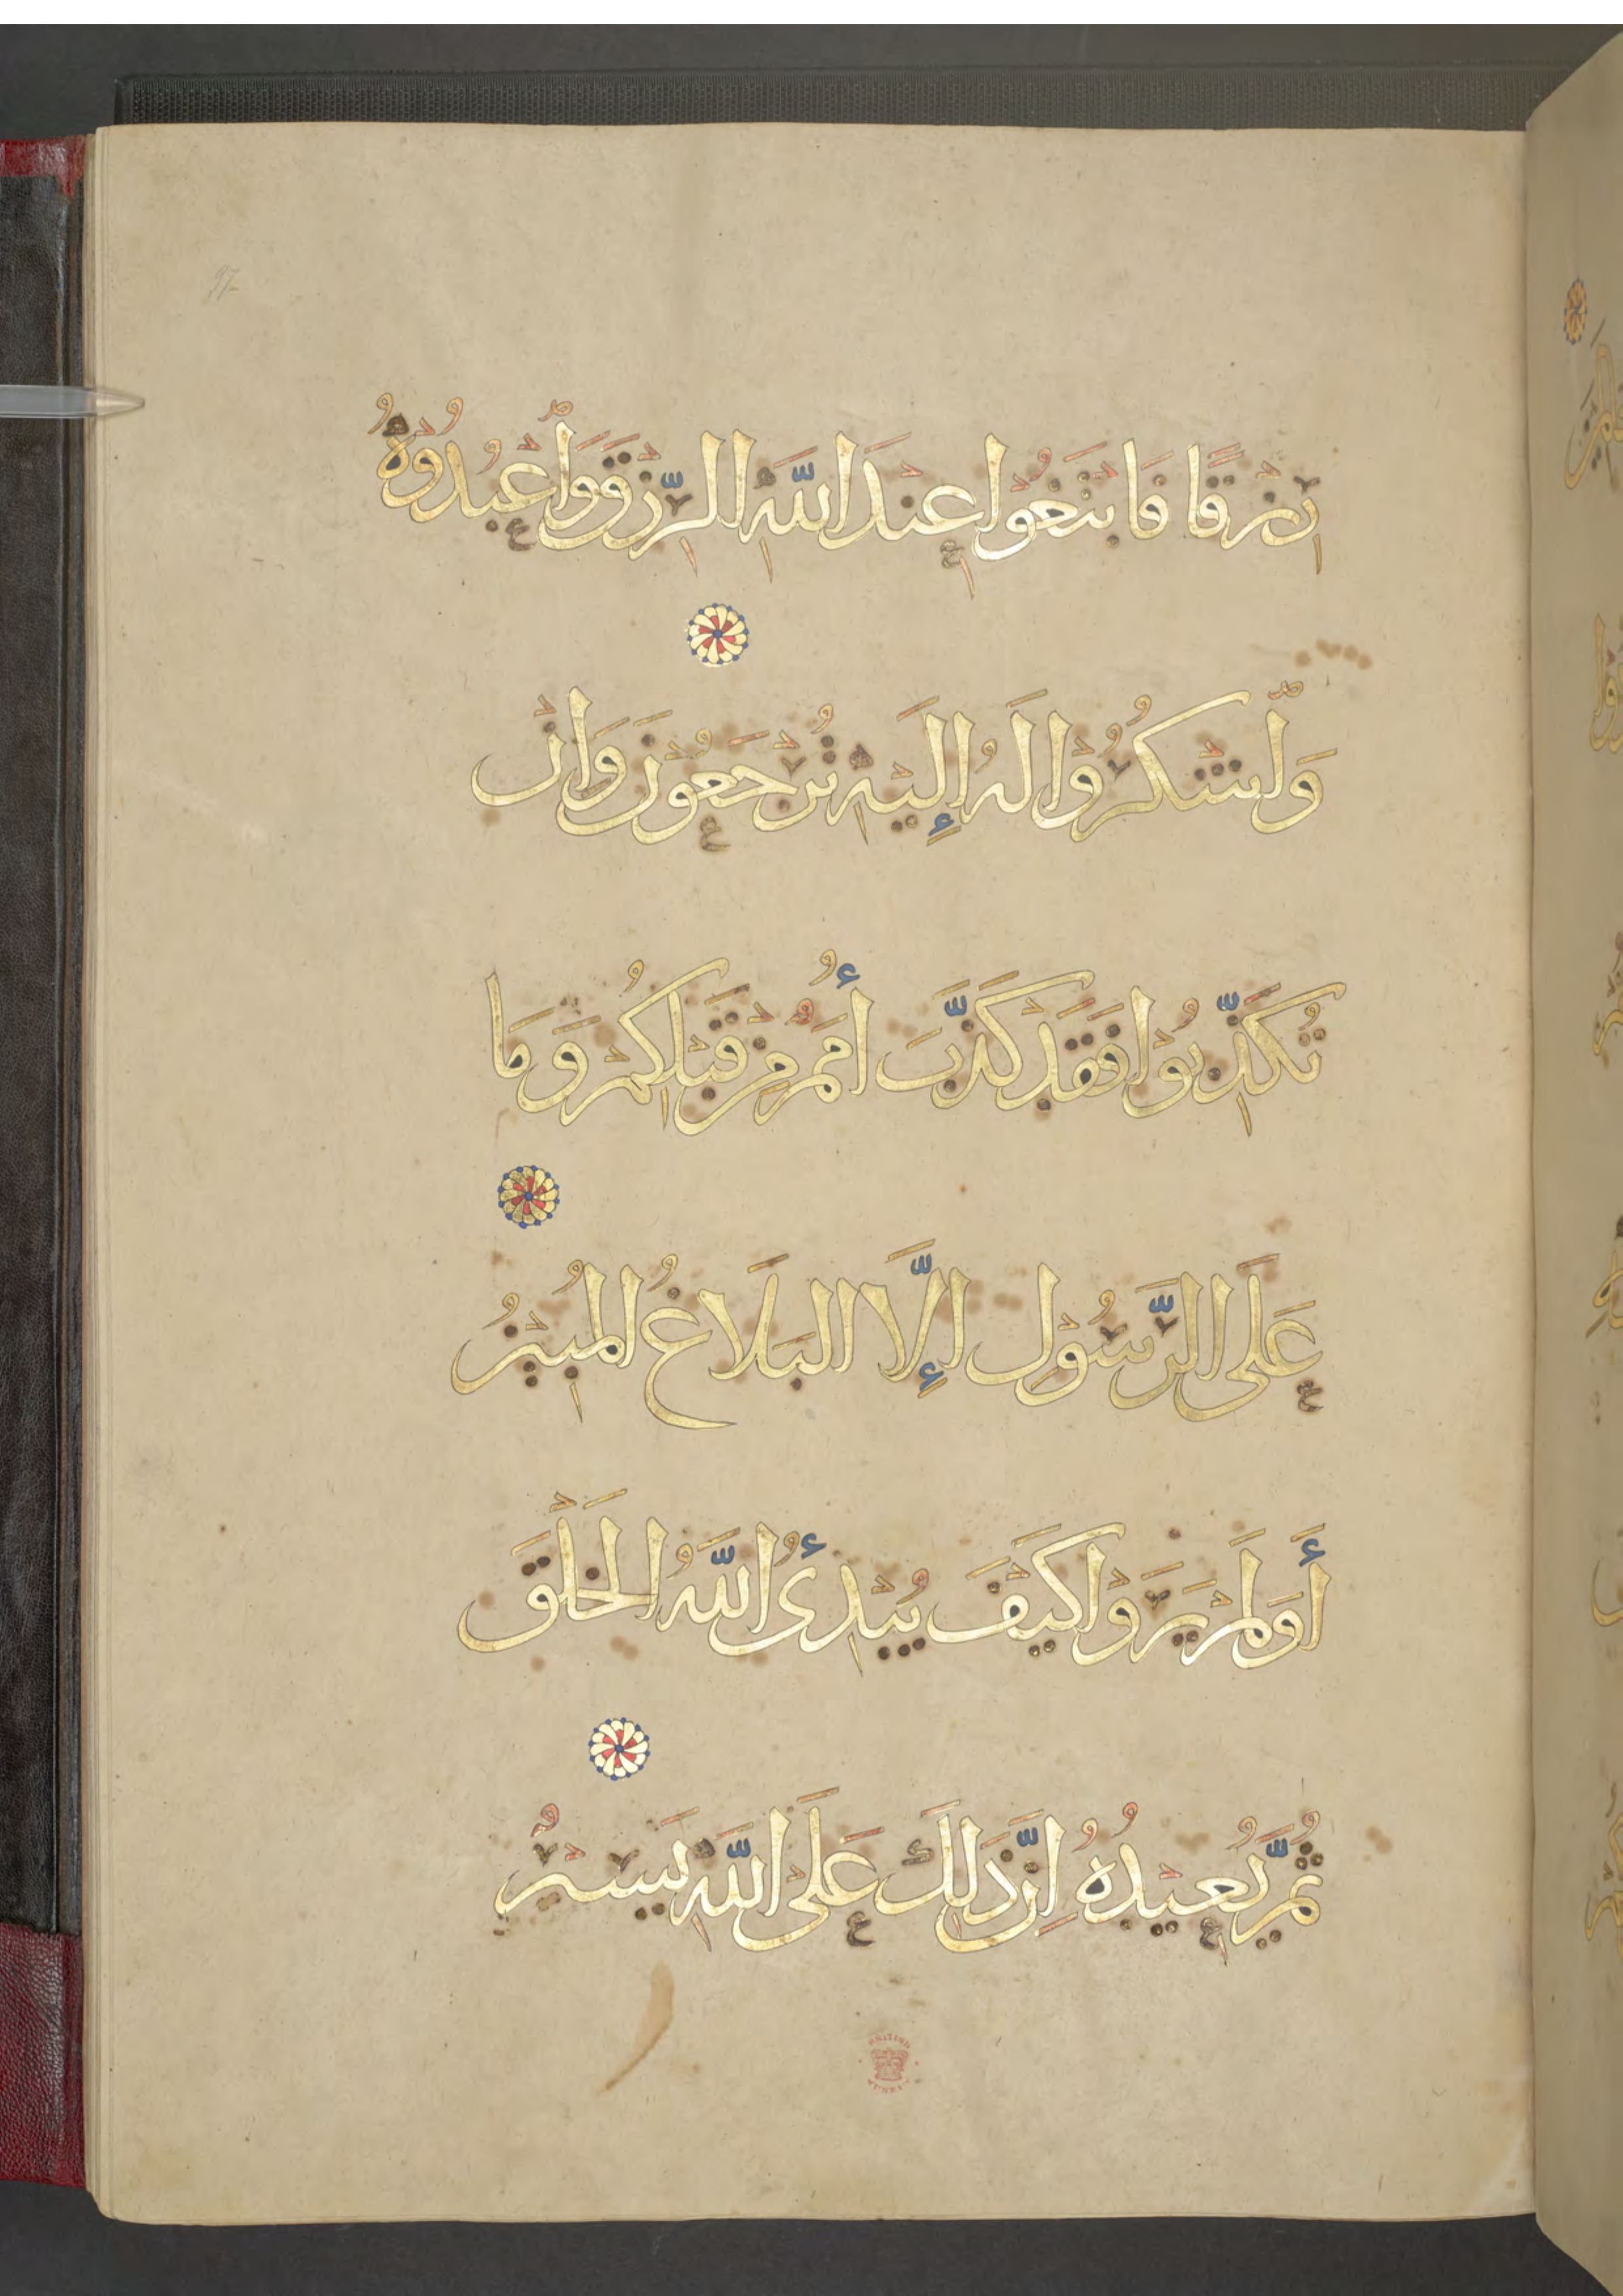 97
رِزْقًا فَابْتَغُوا عِنْدَ اللَّهِ الرِّزْقَ وَاعْبُدُوهُ
وَاشْكُرُوا لَهُ إِلَيْهِ تُرْجَعُونَ وَإِنْ
تُكَذِّبُوا فَقَدْ كَذَّبَ أُمَمٌ مِنْ قَبْلِكُمْ وَمَا
عَلَى الرَّسُولِ إِلَّا الْبَلَاغُ الْمُبِينُ
أَوَلَمْ يَرَوْا كَيْفَ يُبْدِئُ اللَّهُ الْخَلْقَ
ثُمَّ يُعِيدُهُ إِنَّ ذَلِكَ عَلَى اللَّهِ يَسِيرٌ
BRITISH
MUSEUM